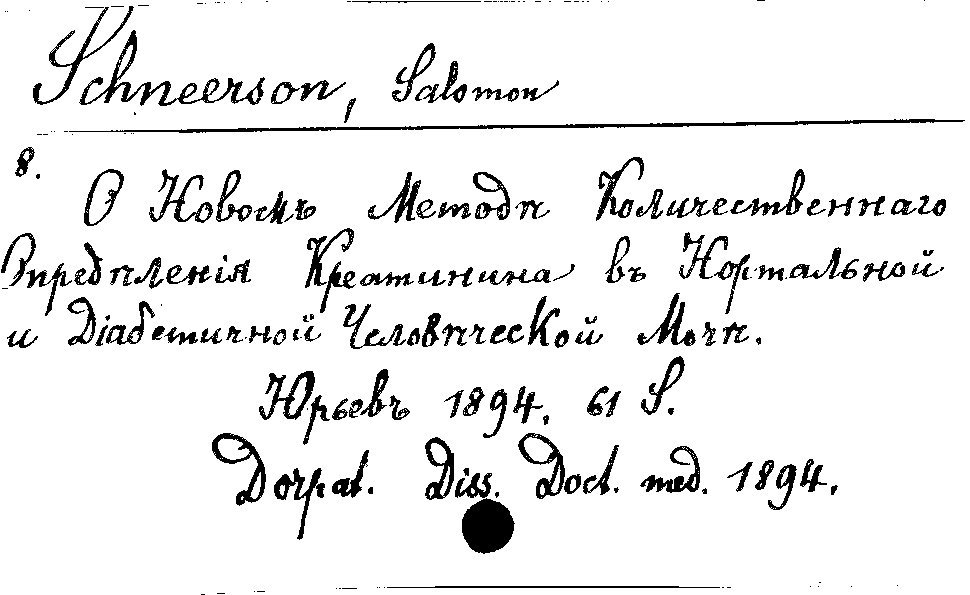 Schneerson, Salomon
8.
О Новомъ Методѣ Количественнаго
Опредѣленія Креатинина въ Нормальной
и Діабетичной Человѣческой Мочѣ.
Юрьевъ 1894. 61 S.
Dorpat. Diss. Doct. med. 1894.